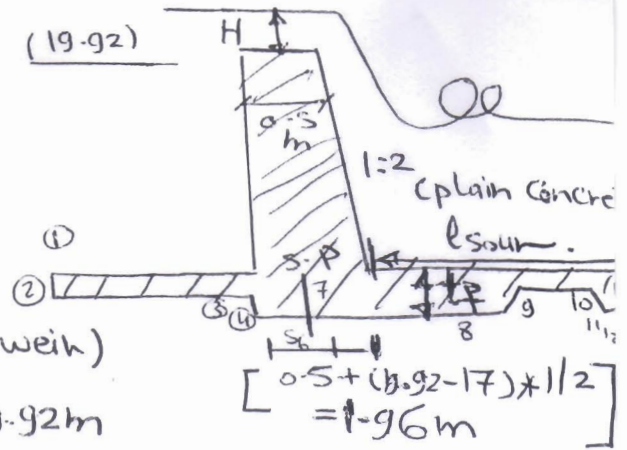 (19.92)
H
0.5
m
1:2
(plain Concre
lsour.
①
②
③
④
S.P
7
8
9
10
11
12
weir)
.92m
[ 0.5 + (19.92-17) * 1/2
= 1.96m ]